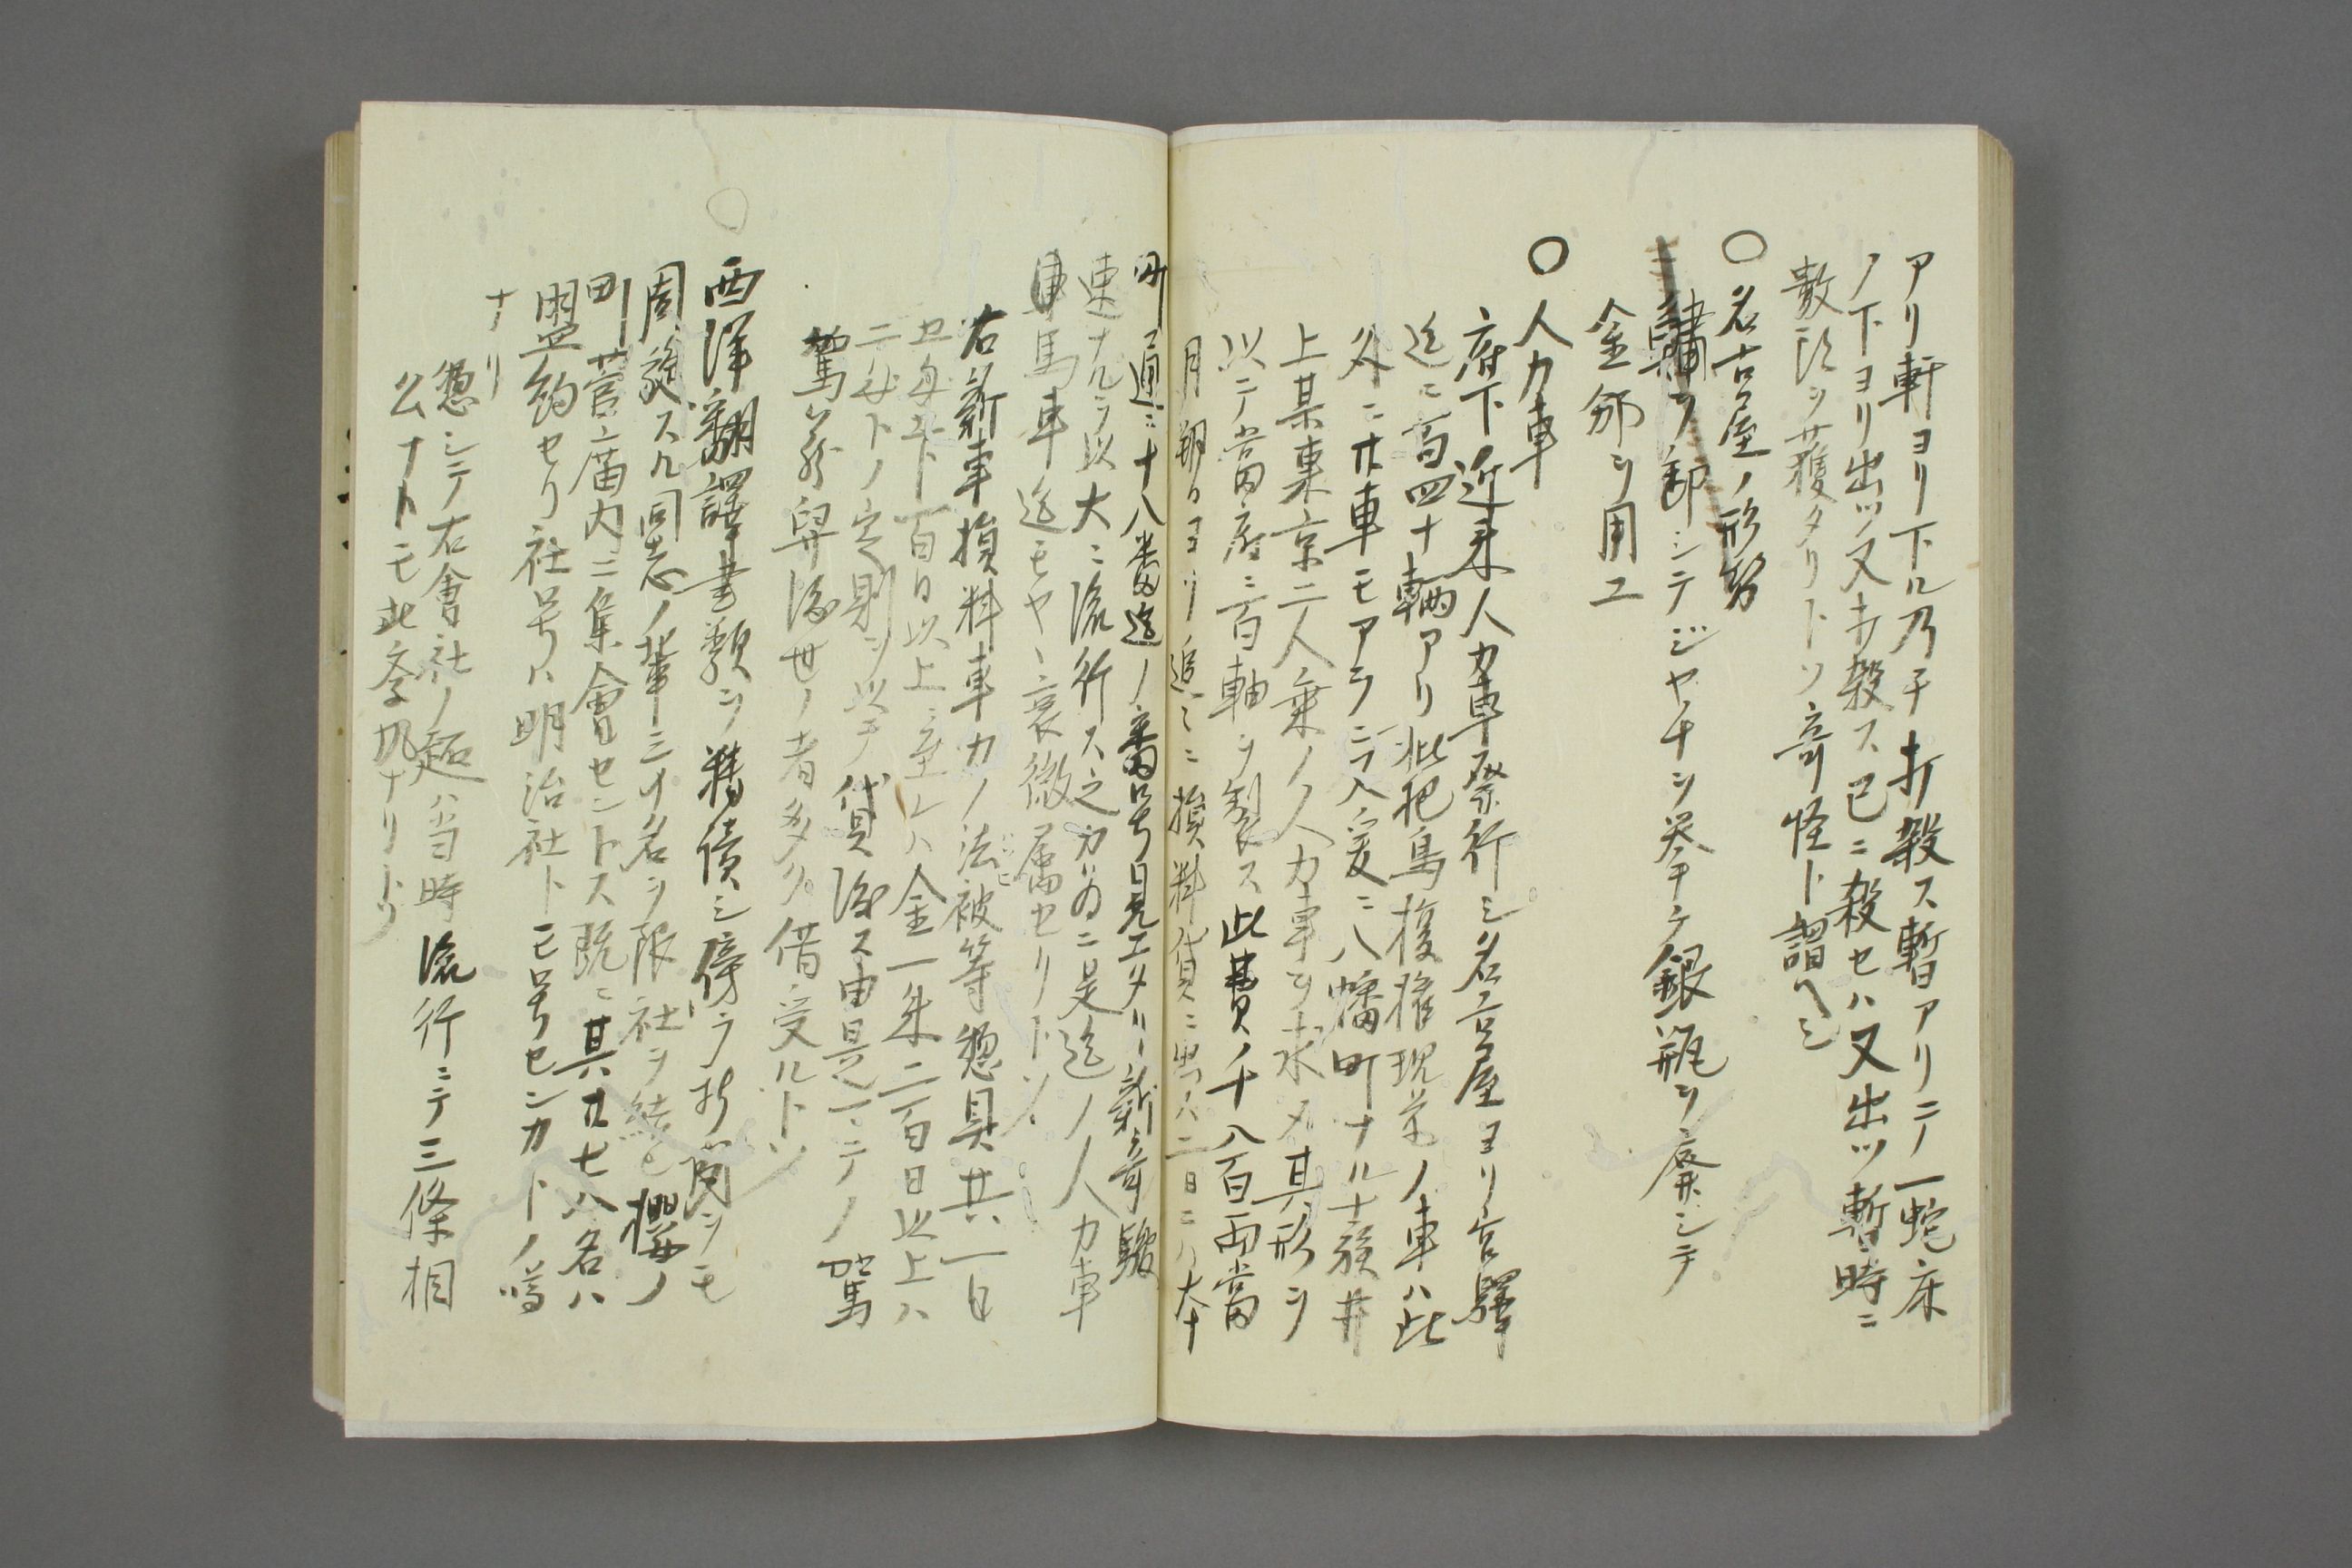 アリ軒ヨリ下ル乃チ打殺ス暫アリニテ一蛇床
ノ下ヨリ出ツ又打殺ス已ニ殺セハ又出ツ暫時ニ
數頭ヲ獲タリトソ奇怪ト謂ヘシ
○名古屋ノ形勢
ヲ卸シテジヤチヲ挙テ銀瓶ヲ廃シテ
金邠ヲ用ユ
○人力車
府下近来人力車祭行シ名古屋ヨリ宮驛
迄ニ高四十輌アリ枇杷島複擢現前ノ車ハ此
外ニ廿車モアランニ又爰ニ八幡町ナル士族井
上某東京二人乗ノ人力車ヲ求メ其形ヲ
以テ當府ニ百軸ヲ製ス此費ノ千八百両當
月朔日ヨリ追々ニ損料貸ニ出ス二日ニハ大十
町通ニ十八番迄ノ番号見エタリ新奇駿
速ナルヲ以大ニ流行ス之カ為ニ是迄ノ人力車
馬車迄モヤヽ衰微属セリトソ
右新車損料車力ノ法被等惣具共一日
ヨ毎下百日以上ニ至レハ金一朱二百日以上ハ
二毎トノ定則ヲ以テ貸渡ス由是一ニテノ駕
篭舁渡世ノ者多ク借受ルトソ
○西洋翻譯書類ヲ積債シ傍ラ新聞ヲモ
周旋スル同志ノ輩三十名ヲ限社ヲ結ヒ櫻ノ
町菅廟内ニ集會セントス既ニ其廿七八名ハ
盟約セリ社号ハ明治社トモ号センカトノ噂
ナリ
惣シテ右會社ノ起ハ当時流行ニテ三條相
公ナトモ此李帆ナリトソ